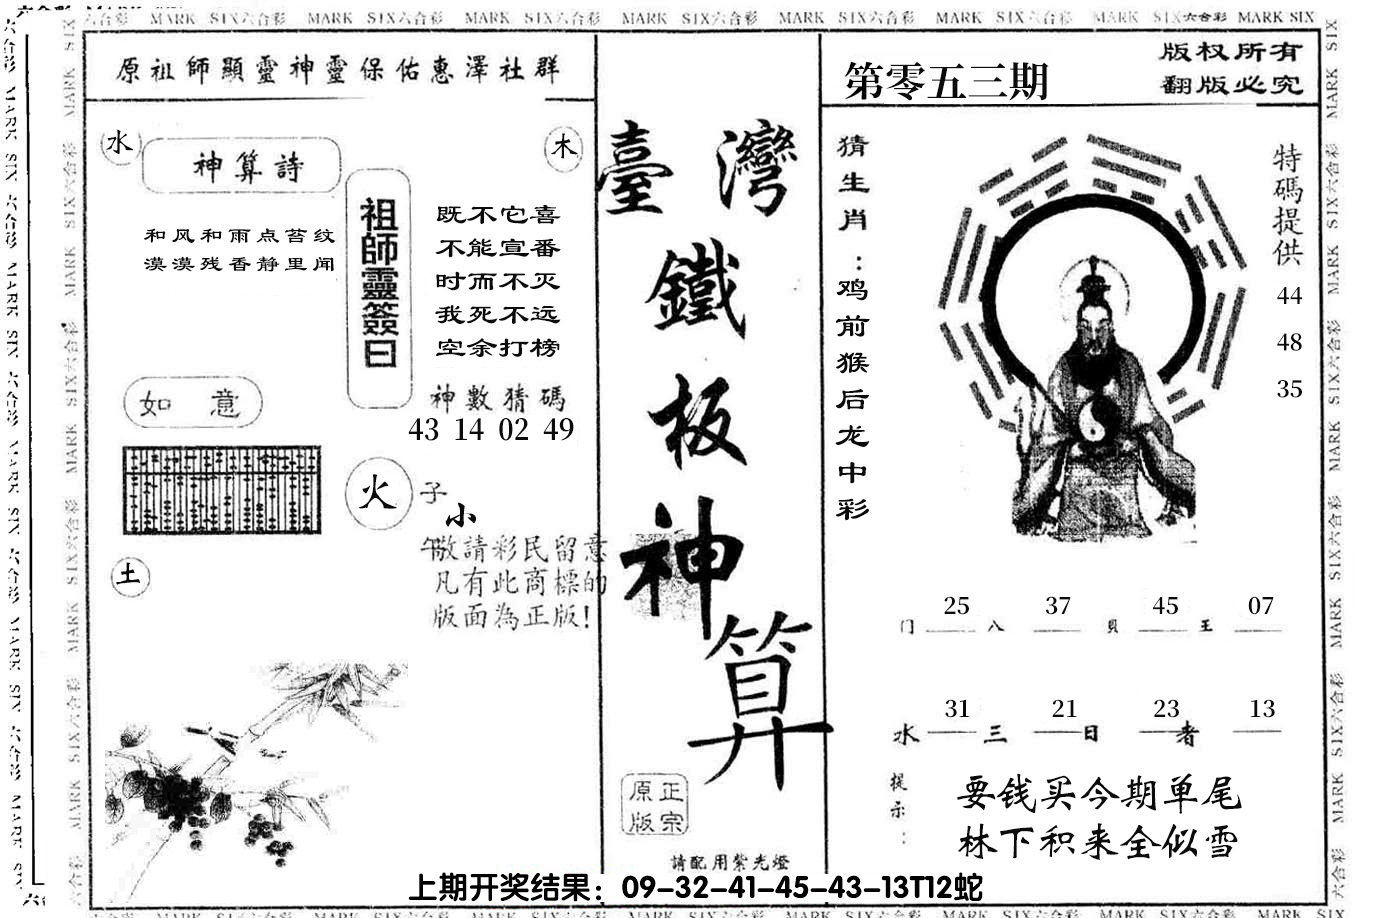 MARK SIX六合彩 MARK SIX六合彩 MARK SIX六合彩 MARK SIX六合彩 MARK SIX六合彩 MARK SIX六合彩 MARK SIX六合彩 MARK SIX
原祖師顯靈神靈保佑惠澤社群
水
神算詩
木
和风和雨点苔纹
漠漠残香静里闻
祖師靈簽曰
既不它喜
不能宣番
时而不灭
我死不远
空余打榜
神數猜碼
43 14 02 49
如意
火
子
小
午
敬請彩民留意
凡有此商標的
版面為正版!
土
臺灣
鐵
板
神
算
正宗
原版
請配用紫光燈
第零五三期
版权所有
翻版必究
猜生肖:鸡前猴后龙中彩
特碼提供
44
48
35
25 37 45 07
门 八 贝 王
31 21 23 13
水 三 日 者
提示:
要钱买今期单尾
林下积来全似雪
上期开奖结果：09-32-41-45-43-13T12蛇